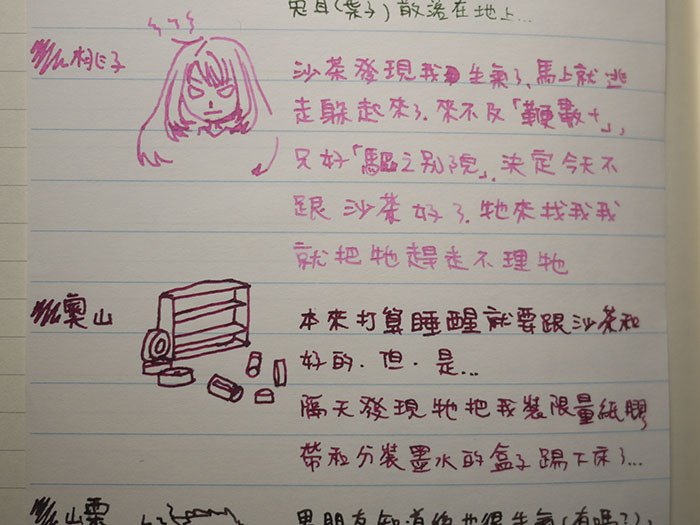 鬼耳(葉子)散落在地上...
桃子
沙茶發現我生氣了,馬上就逃
走躲起來了,來不及「鞭數十」,
只好「驅之別院」,決定今天不
跟沙茶好了,牠來找我我
就把牠趕走不理牠
奧山
本來打算睡醒就要跟沙茶和
好的.但.是...
隔天發現牠把我裝限量紙膠
帶和分裝墨水的盒子踢下床了...
山栗
男朋友知道後也很生氣(有嗎?),